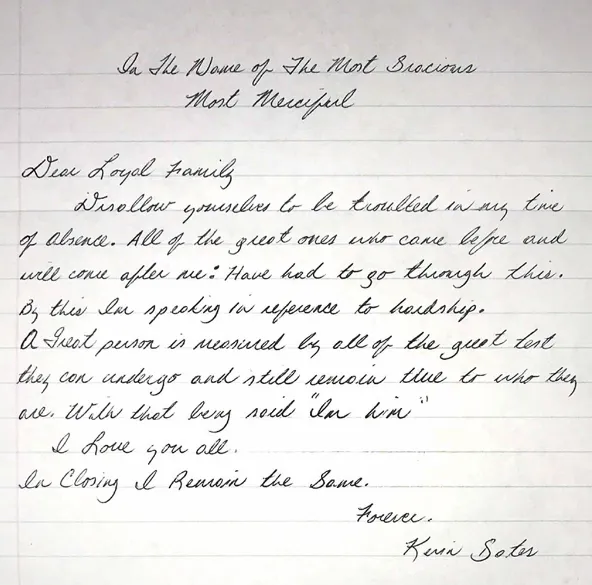 In The Name of The Most Gracious
Most Merciful
Dear Loyal Family
Disallow yourselves to be troubled in my time
of absence. All of the great ones who came before and
will come after me: Have had to go through this.
By this Im speaking in reference to hardship.
A Great person is measured by all of the great test
they can undergo and still remain true to who they
are. With that being said "Im him"
I Love you all.
In Closing I Remain the Same.
Forever.
Kevin Gates